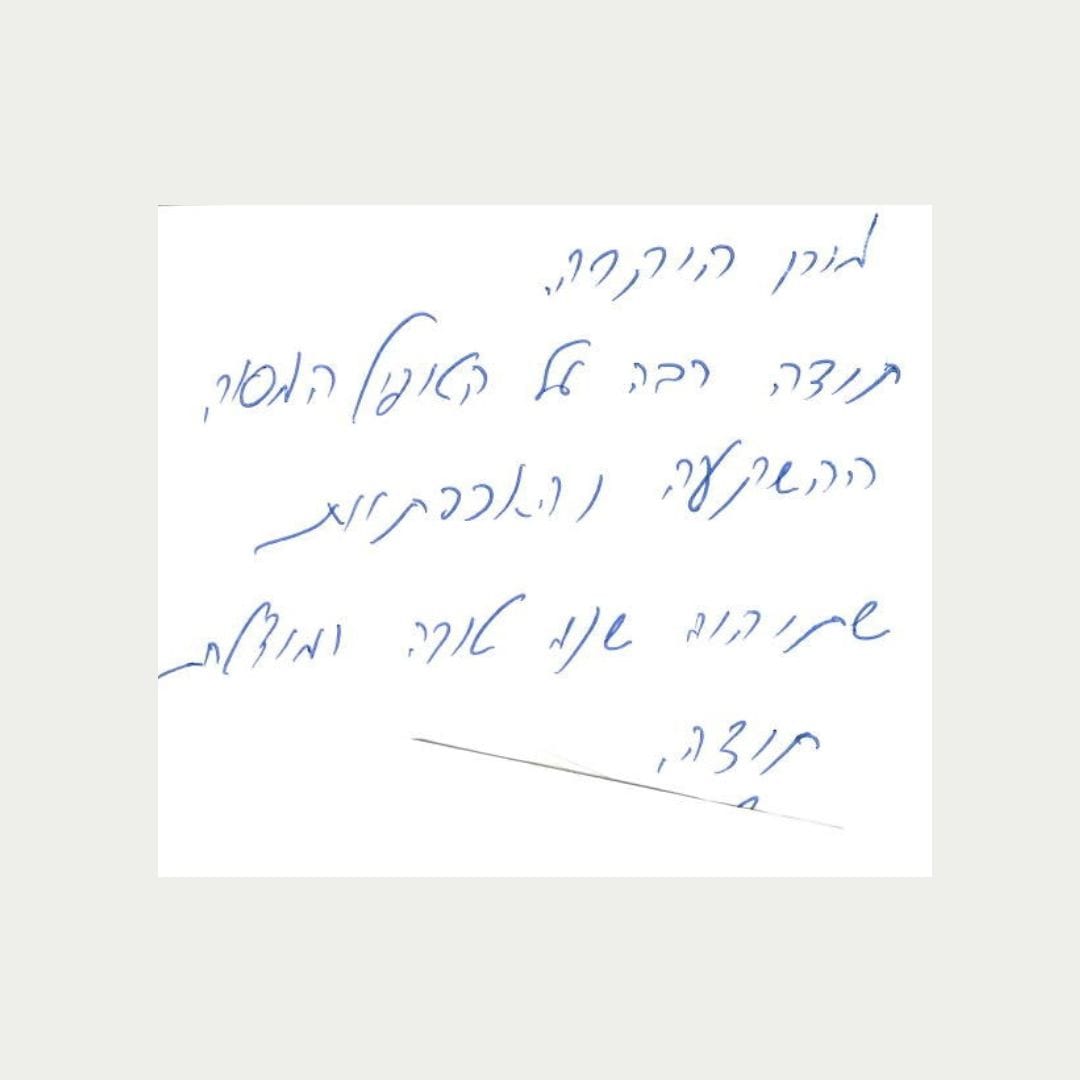 מורן היקרה,
תודה רבה על הטיפול המסור,
ההשקעה והאכפתיות
שתיהיה שנה טובה ומוצלחת
תודה,